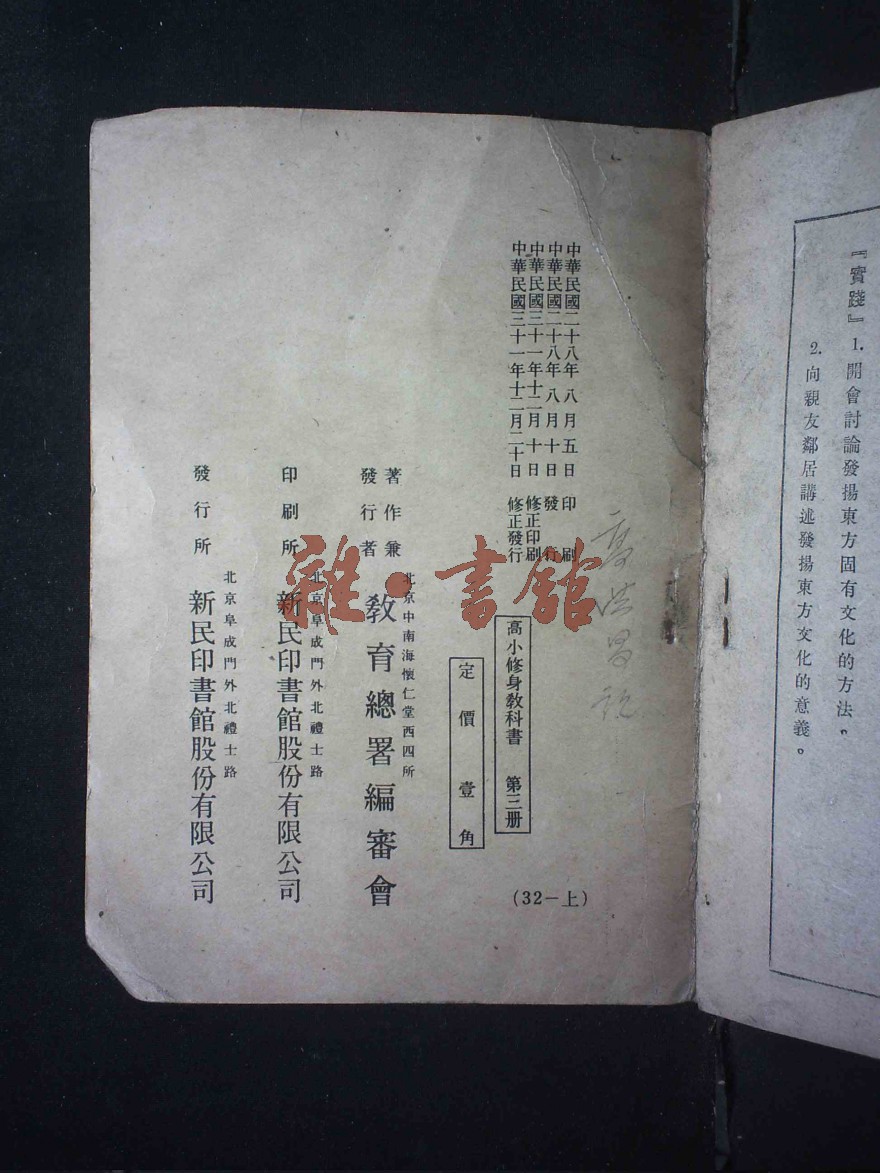 『實踐』1. 開會討論發揚東方固有文化的方法。
2. 向親友鄰居講述發揚東方文化的意義。
中華民國二十八年 八月五日 印刷
中華民國二十八年 八月十日 發行
中華民國三十一年十二月十日 修正印刷
中華民國三十一年十二月二十日 修正發行
高小修身教科書 第三册
定價壹角
(32—上)
著作兼
發行者
北京中南海懷仁堂西四所
教育總署編審會
北京阜成門外北禮士路
印刷所 新民印書館股份有限公司
北京阜成門外北禮士路
發行所 新民印書館股份有限公司
雜·書館